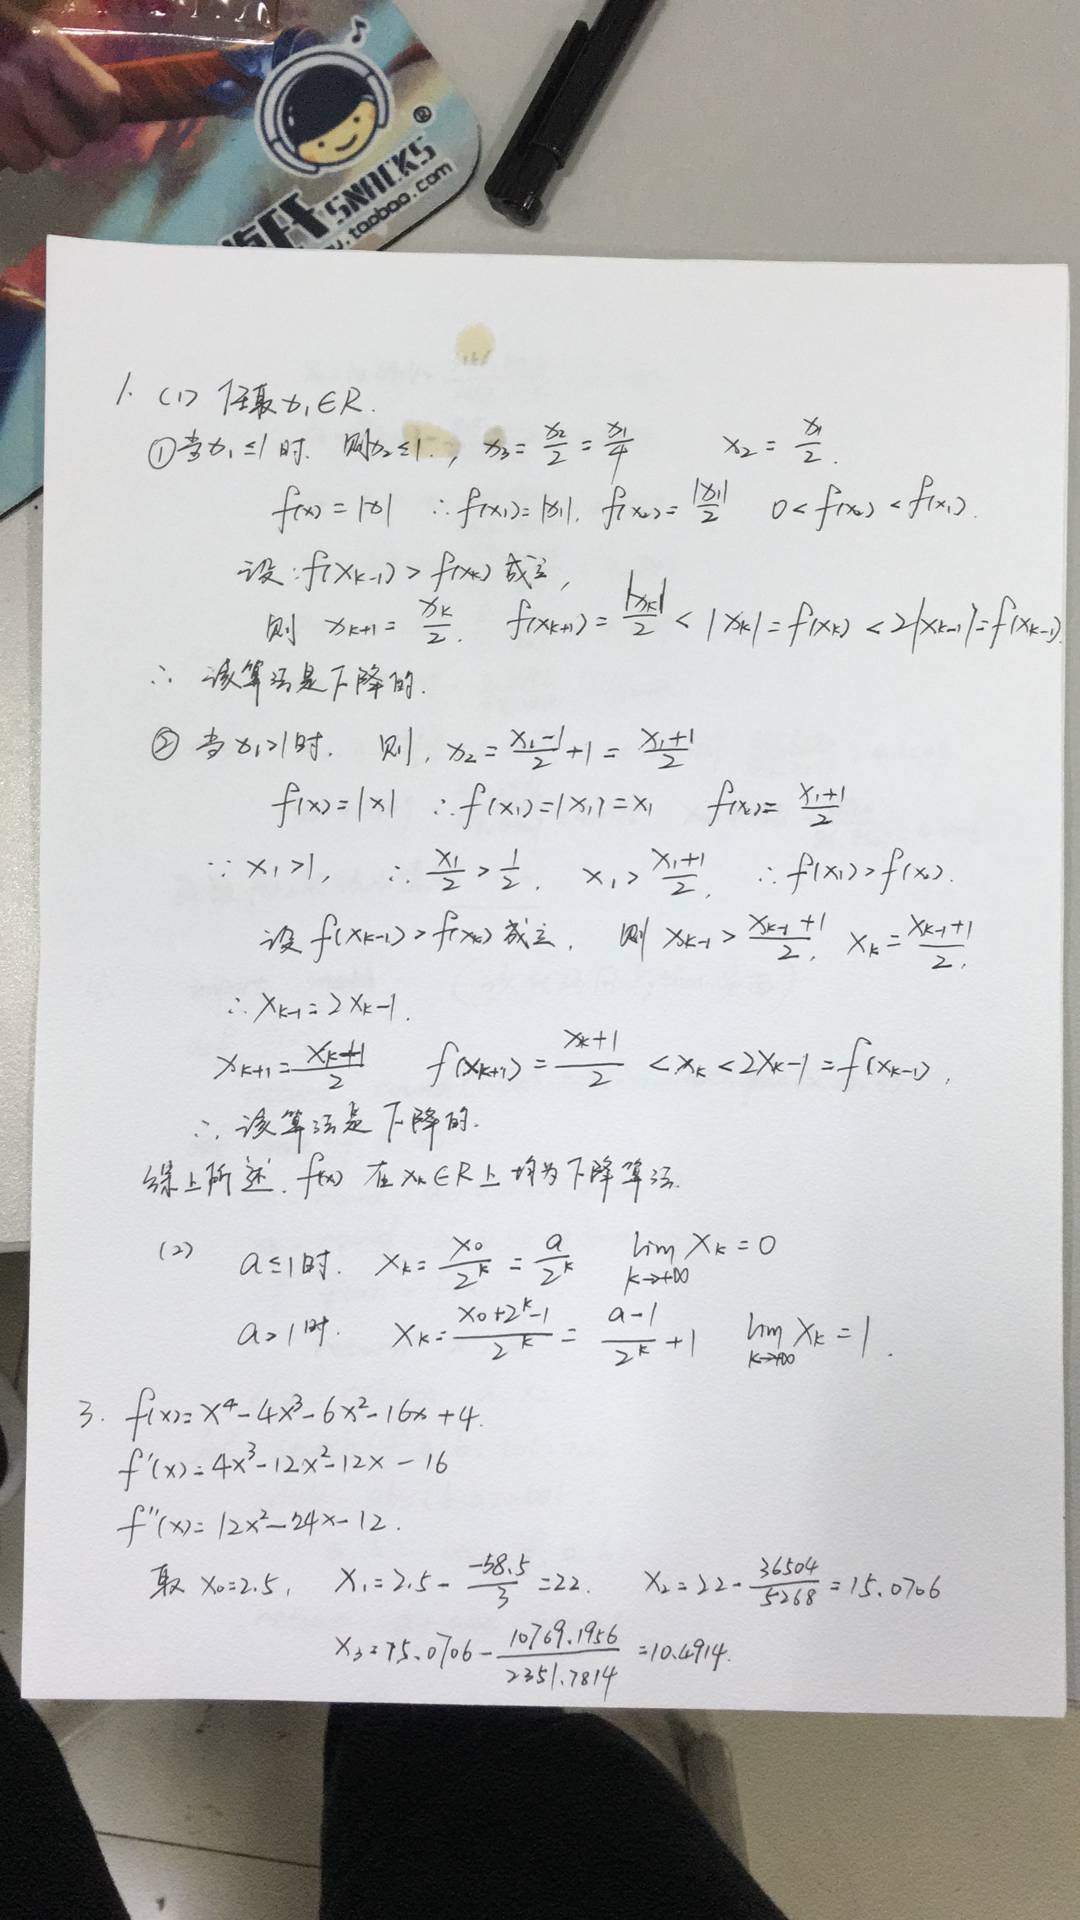 SNACKS®
.taobao.com
1. (1) 任取x₁∈R.
①当x₁≤1时. 则x₂≤1, x₃=x₂/2=x₁/4 x₂=x₁/2.
f(x)=|x| ∴f(x₁)=|x₁|, f(x₂)=|x₁|/2 0<f(x₂)<f(x₁).
设:f(xₖ₋₁)>f(xₖ)成立,
则 xₖ₊₁=xₖ/2. f(xₖ₊₁)=|xₖ|/2<|xₖ|=f(xₖ)<2|xₖ₋₁|=f(xₖ₋₁).
∴ 该算法是下降的.
② 当x₁>1时. 则, x₂=(x₁-1)/2+1=(x₁+1)/2
f(x)=|x| ∴f(x₁)=|x₁|=x₁ f(x₂)=(x₁+1)/2
∵x₁>1, ∴x₁/2>1/2. x₁>(x₁+1)/2, ∴f(x₁)>f(x₂).
设f(xₖ₋₁)>f(xₖ)成立, 则xₖ₋₁>(xₖ₋₁+1)/2, xₖ=(xₖ₋₁+1)/2,
∴xₖ₋₁=2xₖ-1.
xₖ₊₁=(xₖ+1)/2 f(xₖ₊₁)=(xₖ+1)/2<xₖ<2xₖ-1=f(xₖ₋₁),
∴, 该算法是下降的.
综上所述, f(x)在xₖ∈R上均为下降算法.
(2) a≤1时. xₖ=x₀/2ᵏ=a/2ᵏ lim k→+∞ xₖ=0
a>1时. xₖ=(x₀+2ᵏ-1)/2ᵏ=(a-1)/2ᵏ+1 lim k→+∞ xₖ=1.
3. f(x)=x⁴-4x³-6x²-16x+4.
f'(x)=4x³-12x²-12x-16
f''(x)=12x²-24x-12.
取x₀=2.5, x₁=2.5-(-58.5)/3=22. x₂=22-36504/5268=15.0706
x₃=15.0706-10769.1956/2351.7814=10.4914.